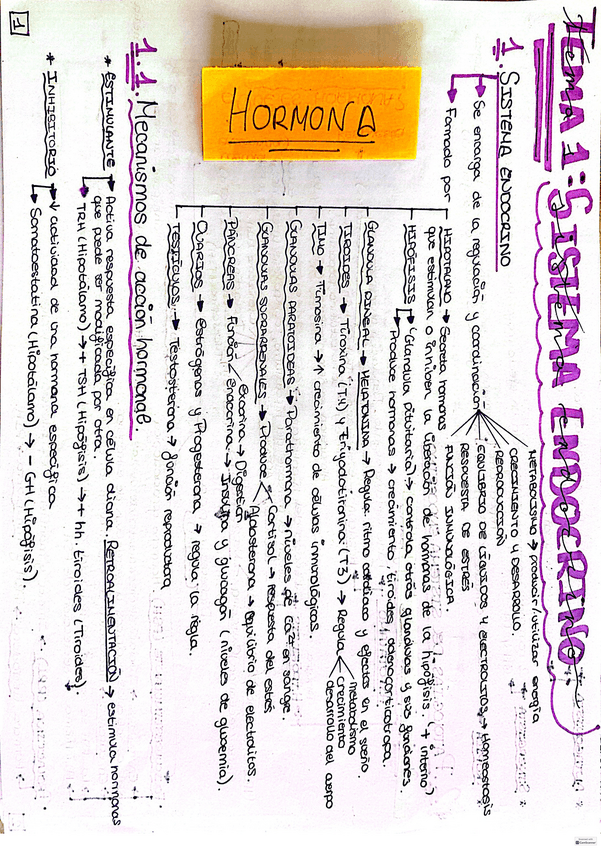 TEMA 1: SISTEMA ENDOCRINO
1. SISTEMA ENDOCRINO
Se encarga de la regulación y coordinación
METABOLISMO → producir/utilizar energía
CRECIMIENTO Y DESARROLLO.
REPRODUCCIÓN
EQUILIBRIO DE LÍQUIDOS Y ELECTROLITOS → Homeostasis
RESPUESTA DE ESTRÉS
FUNCIÓN INMUNOLÓGICA
Formado por
HIPOTÁLAMO → Secreta hormonas
que estimulan o inhiben la liberación de hormonas de la hipófisis (+ interno)
HIPÓFISIS → "Glándula pituitaria) → controla otras glándulas y sus funciones
Produce hormonas → crecimiento, tiroides, adenocorticotropa.
GLÁNDULA PINEAL → MELATONINA → Regula ritmo cardíaco y efectos en el sueño.
TIROIDES → Tiroxina (T4) y triyodotironina (T3) → Regula
metabolismo
crecimiento
desarrollo del cuerpo
TIMO → Timosina → ↑ crecimiento de células inmunológicas.
GLÁNDULAS PARATOIDEAS → Parathormona → niveles de Ca2+ en sangre.
GLÁNDULAS SUPRARRENALES → Produce
Cortisol → respuesta del estrés
Aldosterona → equilibrio de electrolitos.
PÁNCREAS → Función
Exocrina → Digestión
Endocrina → Insulina y glucagón (niveles de glucemia).
OVARIOS → estrógenos y Progesterona → regula la regla.
TESTÍCULOS → Testosterona → función reproductora
HORMONA
1.1. Mecanismos de acción hormonal
* ESTIMULANTE → Activa respuesta específica en célula diana. RETROALIMENTACIÓN → estimula hormonas
que puede ser modificada por otra.
TRH (Hipotálamo) → + TSH (Hipófisis) → + hh. tiroides (Tiroides).
* INHIBITORIO → ↓ actividad de una hormona específica
Somatoestatina (Hipotálamo) → - GH (Hipófisis).
1